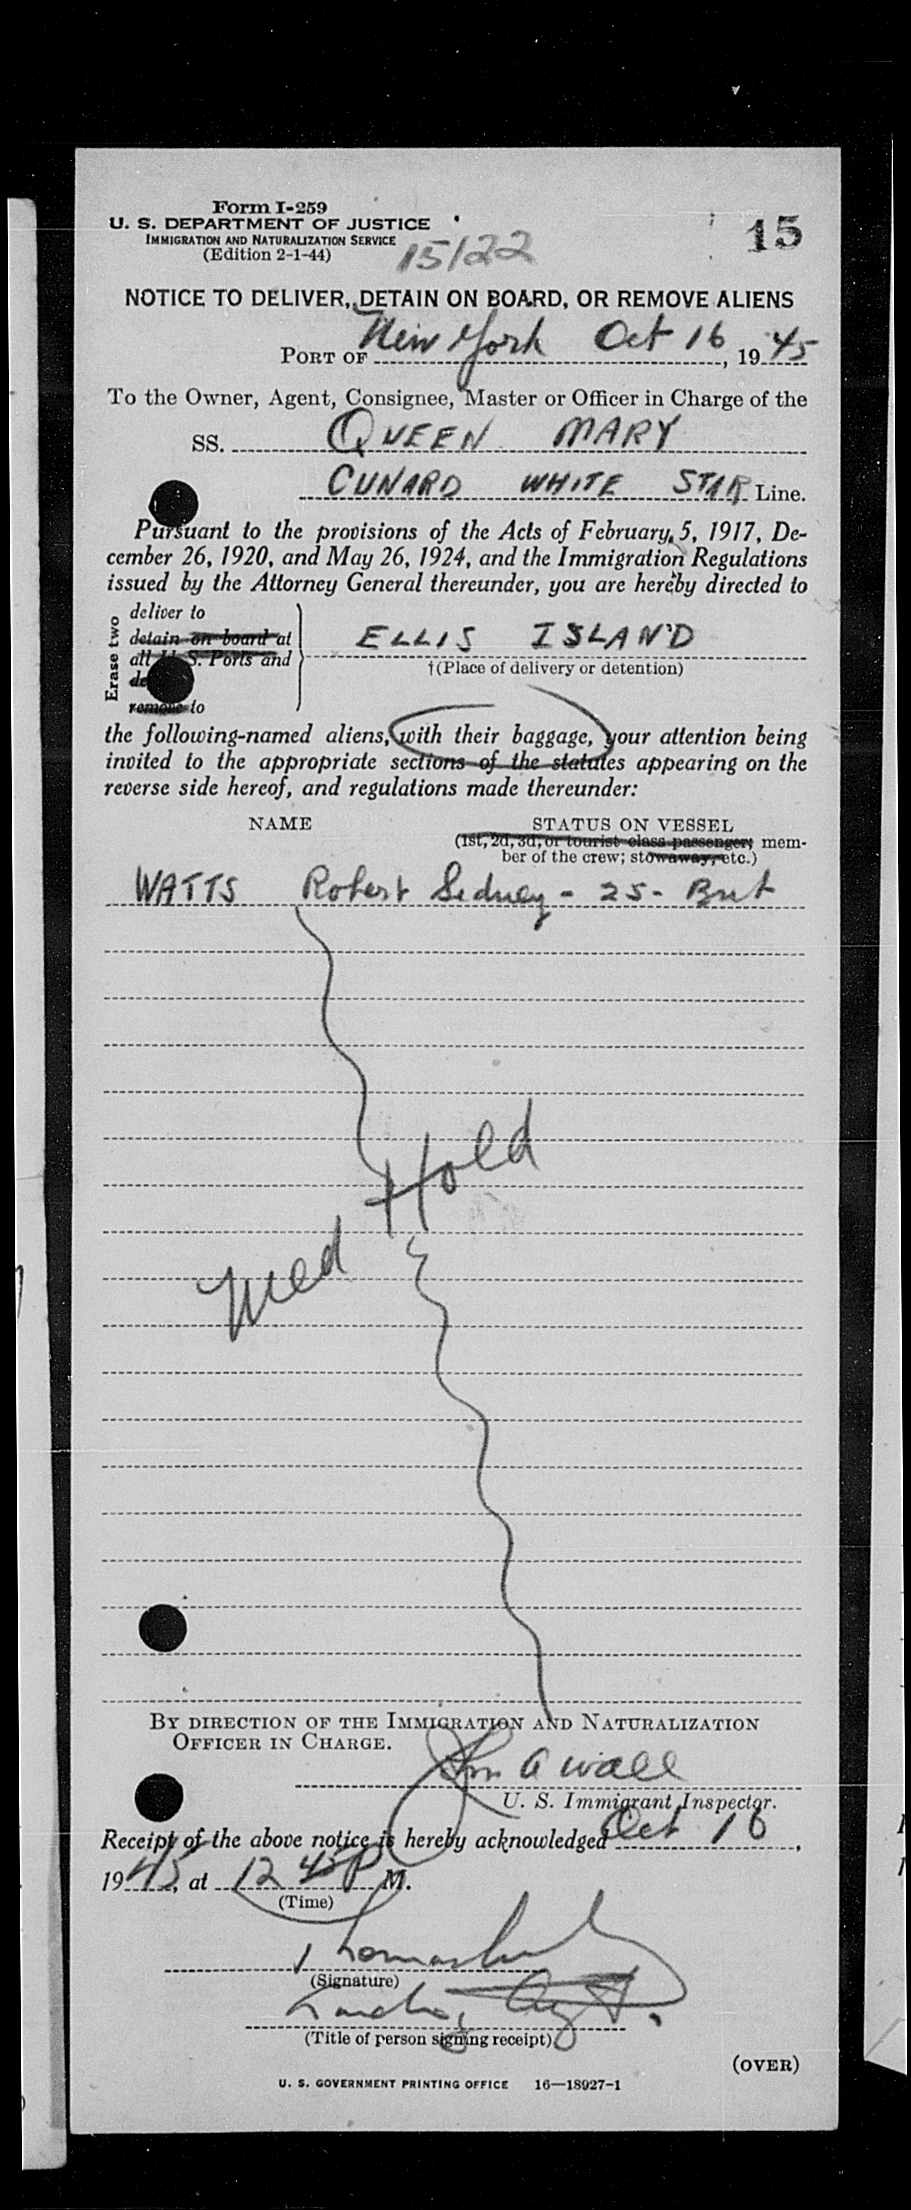 Form I-259
U. S. DEPARTMENT OF JUSTICE
IMMIGRATION AND NATURALIZATION SERVICE
(Edition 2-1-44)
15/22
15
NOTICE TO DELIVER, DETAIN ON BOARD, OR REMOVE ALIENS
PORT OF New York Oct 16, 1945
To the Owner, Agent, Consignee, Master or Officer in Charge of the
SS. QUEEN MARY
CUNARD WHITE STAR Line.
Pursuant to the provisions of the Acts of February 5, 1917, De-
cember 26, 1920, and May 26, 1924, and the Immigration Regulations
issued by the Attorney General thereunder, you are hereby directed to
Erase two
deliver to
detain on board at
all U. S. Ports and
remove to
ELLIS ISLAND
†(Place of delivery or detention)
the following-named aliens, with their baggage, your attention being
invited to the appropriate sections of the statutes appearing on the
reverse side hereof, and regulations made thereunder:
NAME STATUS ON VESSEL
(1st, 2d, 3d, or tourist class passenger; mem-
ber of the crew; stowaway, etc.)
WATTS Robert Sidney - 25 - Brit
Med Hold
BY DIRECTION OF THE IMMIGRATION AND NATURALIZATION
OFFICER IN CHARGE.
A Wall
U. S. Immigrant Inspector.
Receipt of the above notice is hereby acknowledged Oct 16,
1945, at 12 45 P M.
(Time)
Thomas
(Signature)
(Title of person signing receipt)
(OVER)
U. S. GOVERNMENT PRINTING OFFICE 16—18927-1